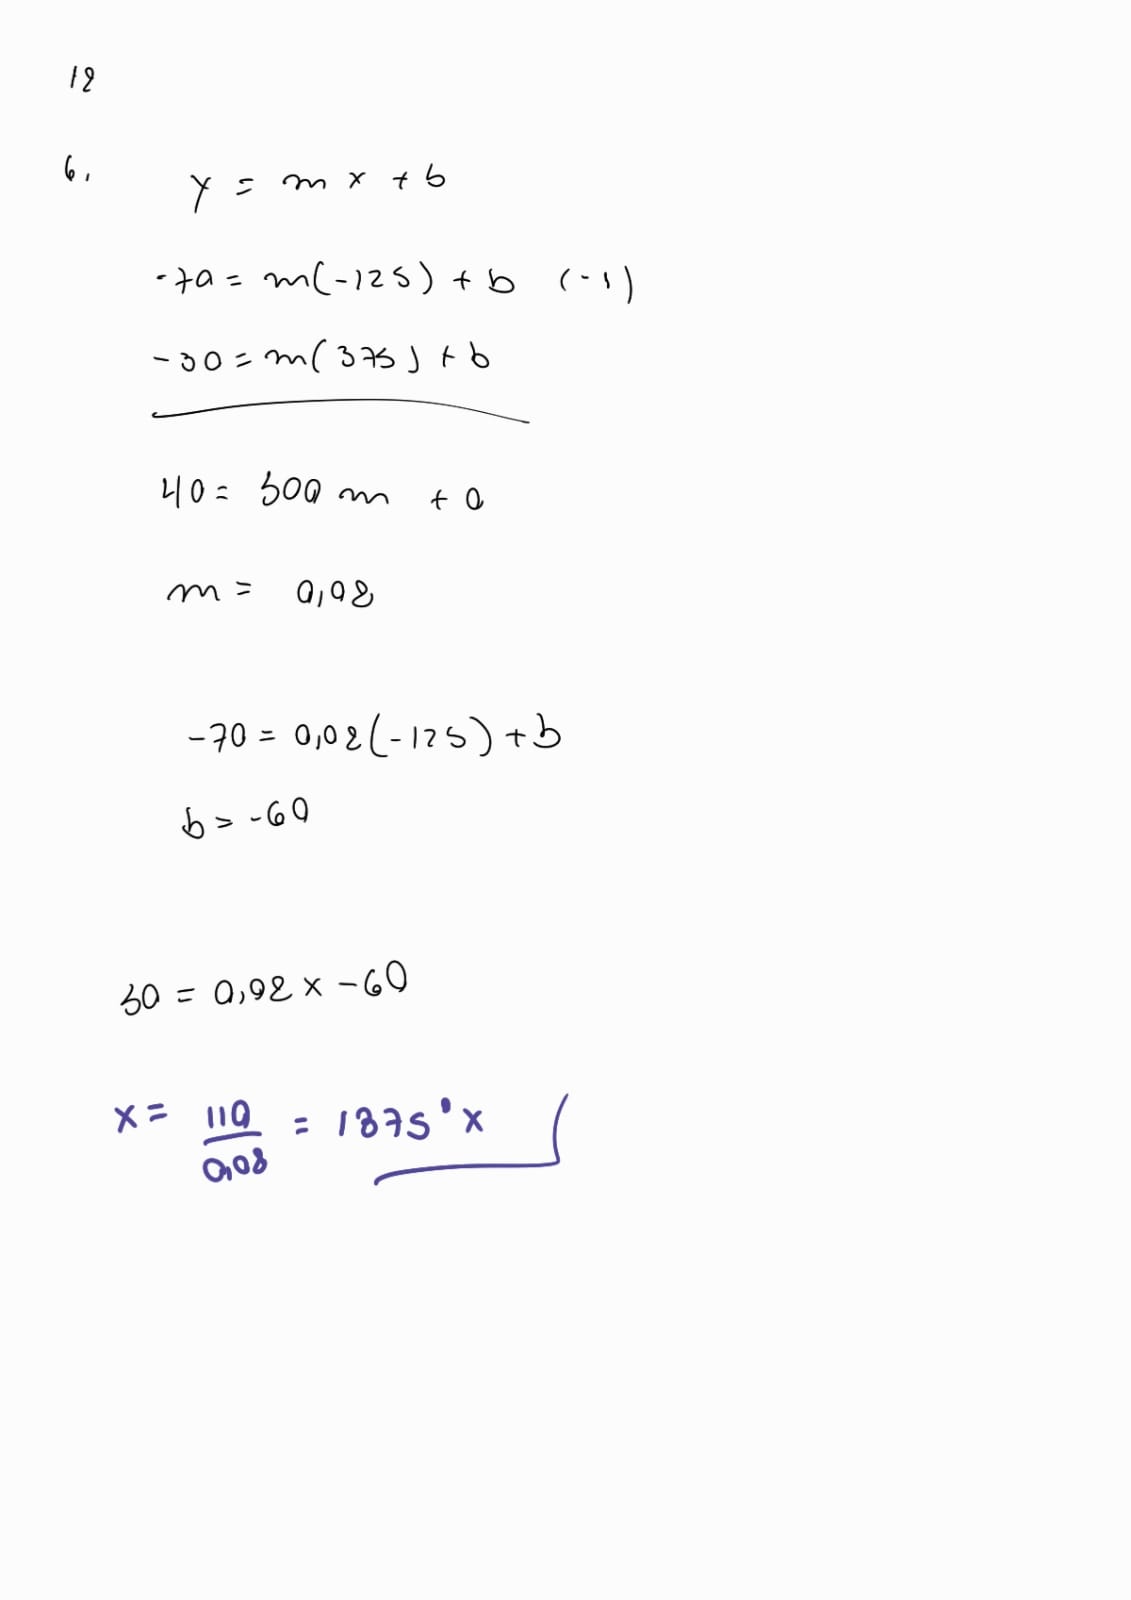 18
6.
y = m x + b
-70 = m(-125) + b (-1)
-30 = m(375) + b
40 = 500 m + 0
m = 0,08
-70 = 0,08(-125) + b
b = -60
50 = 0,08 x - 60
x = 110/0,08 = 1375°x